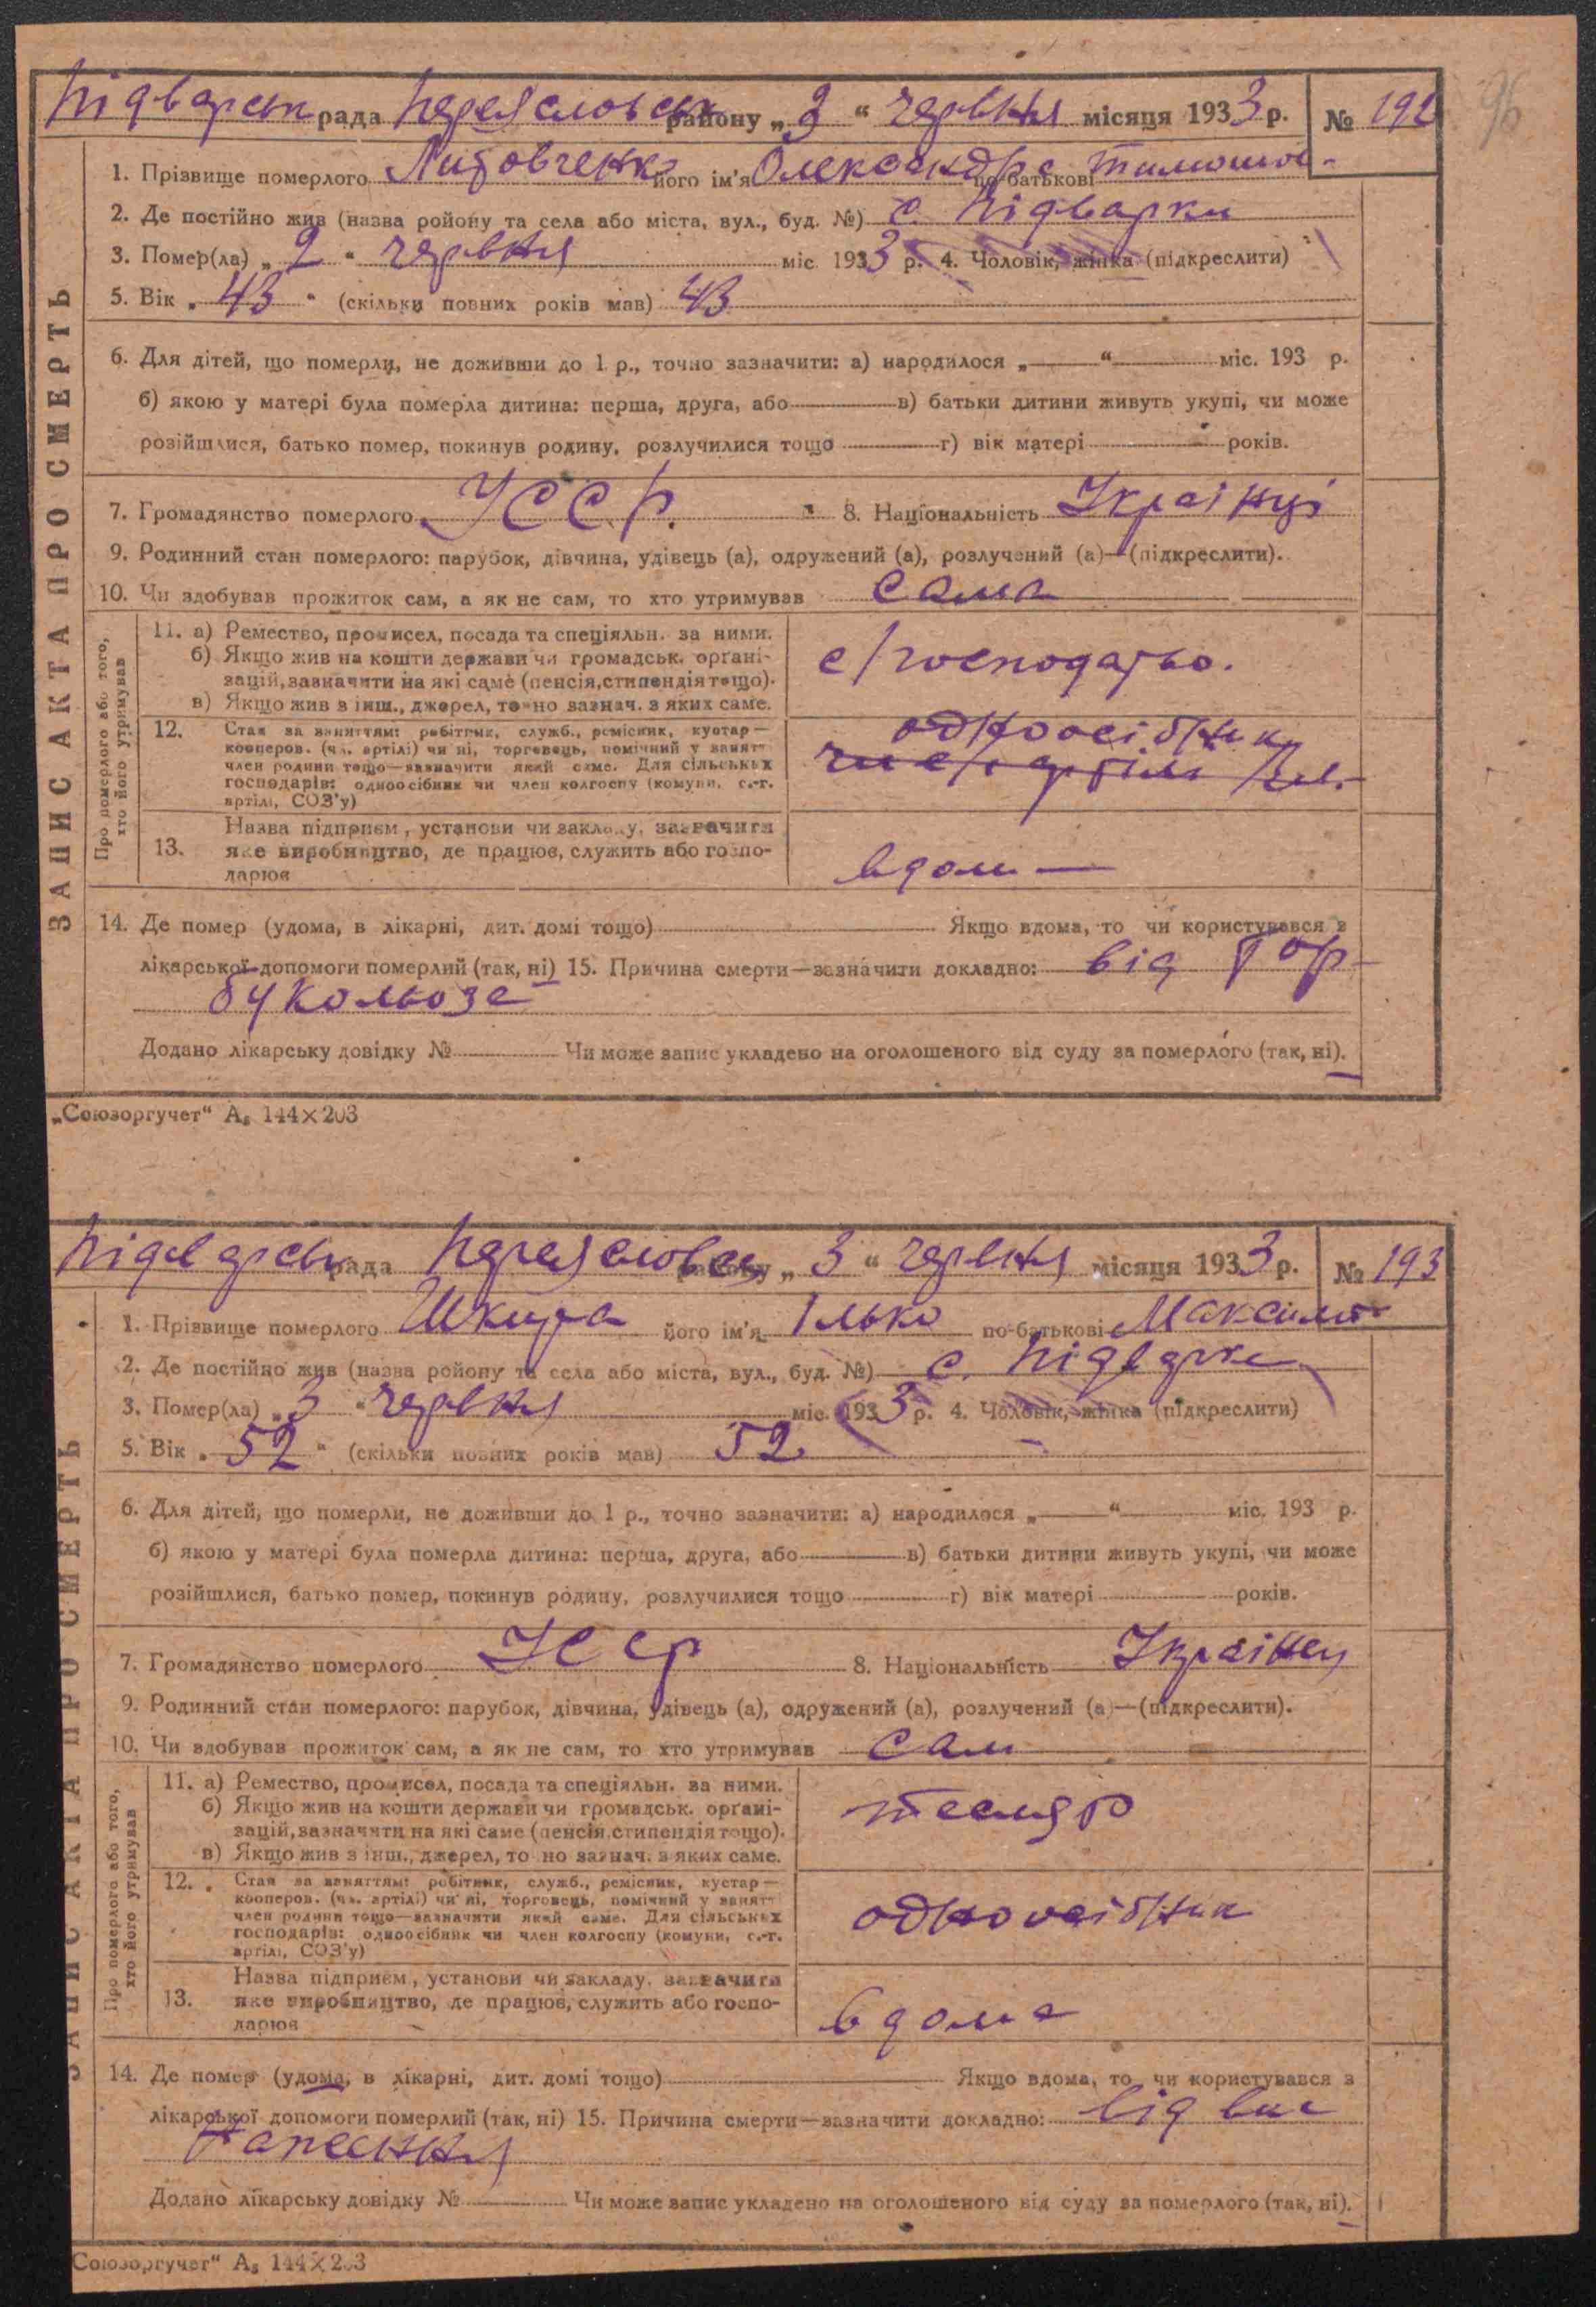 96
Підварськ рада Переяславськ району „3“ червня місяця 1933 р. № 192
ЗАПИС АКТА ПРО СМЕРТЬ
1. Прізвище померлого Литовченко його ім'я Олександра по-батькові Тимошов-
2. Де постійно жив (назва ройону та села або міста, вул., буд. №) с. Підварки
3. Помер(ла) „2“ червня міс. 1933 р. 4. Чоловік, жінка (підкреслити)
5. Вік „43“ (скільки повних років мав) 43
6. Для дітей, що померли, не доживши до 1 р., точно зазначити: а) народилося „ “ міс. 193 р.
б) якою у матері була померла дитина: перша, друга, або в) батьки дитини живуть укупі, чи може
розійшлися, батько помер, покинув родину, розлучилися тощо г) вік матері років.
7. Громадянство померлого УССР. 8. Національність Украінці
9. Родинний стан померлого: парубок, дівчина, удівець (а), одружений (а), розлучений (а)—(підкреслити).
10. Чи здобував прожиток сам, а як не сам, то хто утримував сама
Про померлого або того, хто його утримував
11. а) Ремество, промисел, посада та спеціяльн. за ними.
б) Якщо жив на кошти держави чи громадськ. орґані-
зацій, зазначити на які саме (пенсія, стипендія тощо).
в) Якщо жив з інш., джерел, точно зазнач. з яких саме.
с/господарьо.
12. Стан за заняттям: робітник, служб., ремісник, кустар—
кооперов. (чл. артілі) чи ні, торговець, помічний у занят-
член родини тощо—зазначити який саме. Для сільських
господарів: одноосібник чи член колгоспу (комуни, с.-г.
артілі, СОЗ'у)
одноосібник
13. Назва підприєм, установи чи закладу, зазначити
яке виробництво, де працює, служить або госпо-
дарює
вдом—
14. Де помер (удома, в лікарні, дит. домі тощо) Якщо вдома, то чи користувався з
лікарської допомоги померлий (так, ні) 15. Причина смерти—зазначити докладно: від тор-
букольоза
Додано лікарську довідку № Чи може запис укладено на оголошеного від суду за померлого (так, ні).
„Союзоргучет“ А₅ 144×203
Підварськ рада Переяславськ району „3“ червня місяця 1933 р. № 193
ЗАПИС АКТА ПРО СМЕРТЬ
1. Прізвище померлого Шкира його ім'я Ілько по-батькові Максимо-
2. Де постійно жив (назва ройону та села або міста, вул., буд. №) с. Підварки
3. Помер(ла) „3“ червня міс. 1933 р. 4. Чоловік, жінка (підкреслити)
5. Вік „52“ (скільки повних років мав) 52
6. Для дітей, що померли, не доживши до 1 р., точно зазначити: а) народилося „ “ міс. 193 р.
б) якою у матері була померла дитина: перша, друга, або в) батьки дитини живуть укупі, чи може
розійшлися, батько помер, покинув родину, розлучилися тощо г) вік матері років.
7. Громадянство померлого УССР 8. Національність Украінец
9. Родинний стан померлого: парубок, дівчина, удівець (а), одружений (а), розлучений (а)—(підкреслити).
10. Чи здобував прожиток сам, а як не сам, то хто утримував сам
Про померлого або того, хто його утримував
11. а) Ремество, промисел, посада та спеціяльн. за ними.
б) Якщо жив на кошти держави чи громадськ. орґані-
зацій, зазначити на які саме (пенсія, стипендія тощо).
в) Якщо жив з інш., джерел, то но зазнач. з яких саме.
тесляр
12. Стан за заняттям: робітник, служб., ремісник, кустар—
кооперов. (чл. артілі) чи ні, торговець, помічний у занят-
член родини тощо—зазначити який саме. Для сільських
господарів: одноосібник чи член колгоспу (комуни, с.-г.
артілі, СОЗ'у)
одноосібник
13. Назва підприєм, установи чи закладу, зазначити
яке виробництво, де працює, служить або госпо-
дарює
вдома
14. Де помер (удома, в лікарні, дит. домі тощо) Якщо вдома, то чи користувався з
лікарської допомоги померлий (так, ні) 15. Причина смерти—зазначити докладно: від
Додано лікарську довідку № Чи може запис укладено на оголошеного від суду за померлого (так, ні).
Союзоргучет“ А₅ 144×203